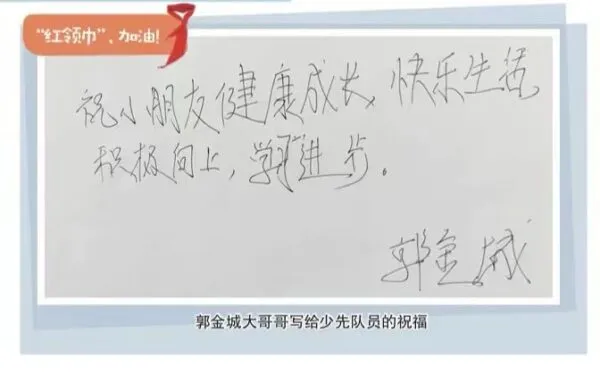 “红领巾”，加油！
祝小朋友健康成长，快乐生活
积极向上，学习进步。
郭金城
郭金城大哥哥写给少先队员的祝福